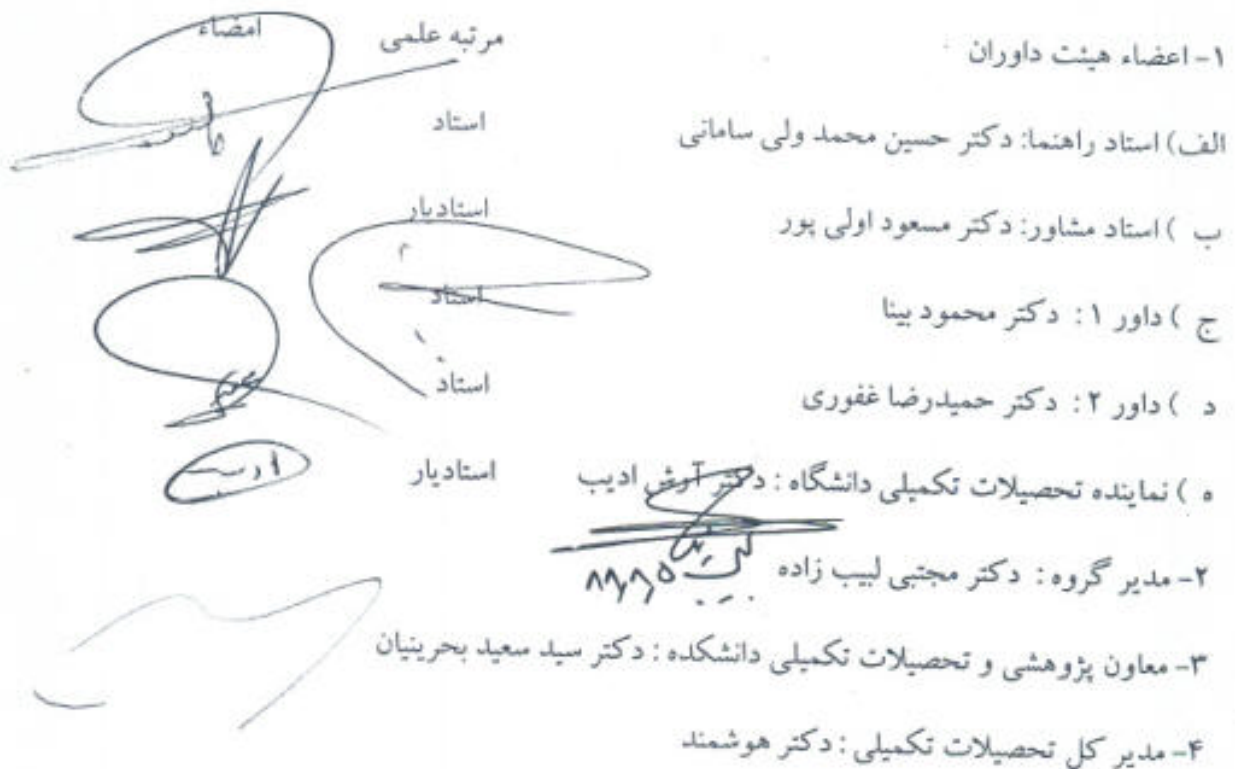 ۱- اعضاء هیئت داوران مرتبه علمی امضاء
الف) استاد راهنما: دکتر حسین محمد ولی سامانی استاد
ب ) استاد مشاور: دکتر مسعود اولی پور استادیار
ج ) داور ۱: دکتر محمود بینا استاد
د ) داور ۲: دکتر حمیدرضا غفوری استاد
ه ) نماینده تحصیلات تکمیلی دانشگاه : دکتر آرش ادیب استادیار
۲- مدیر گروه : دکتر مجتبی لبیب زاده
۳- معاون پژوهشی و تحصیلات تکمیلی دانشکده : دکتر سید سعید بحرینیان
۴- مدیر کل تحصیلات تکمیلی : دکتر هوشمند